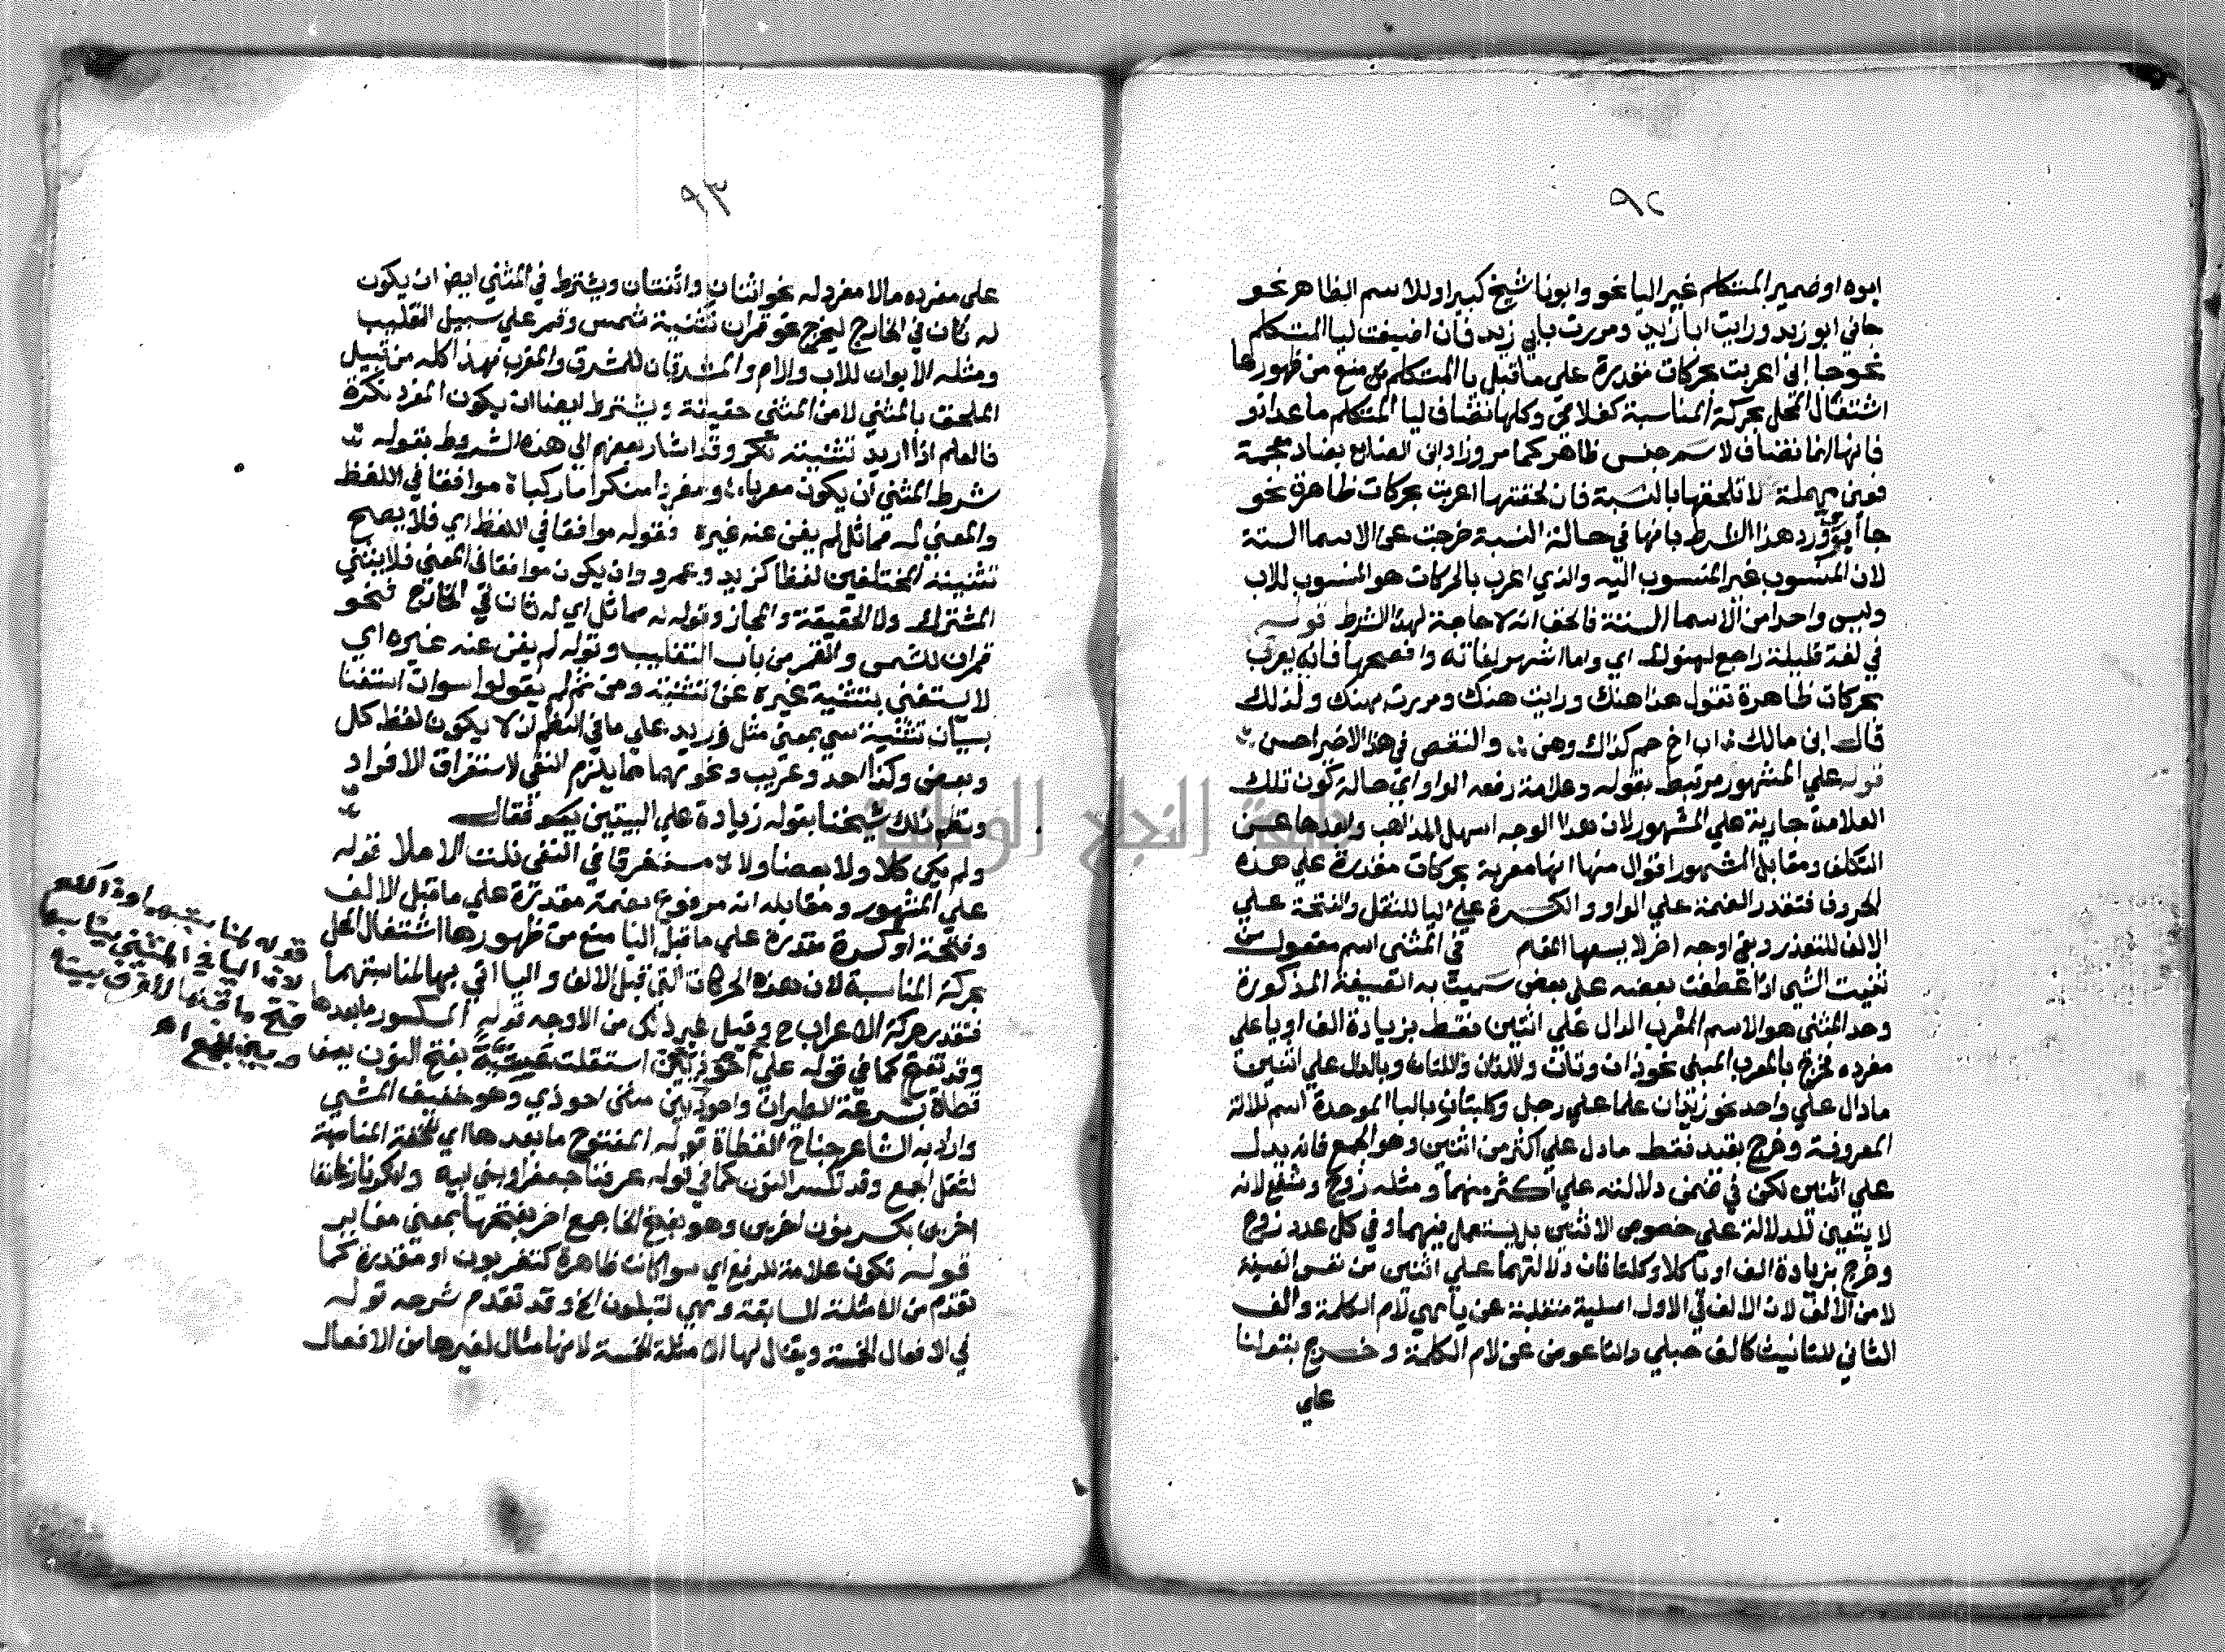 ٩٢
ابوه او ضمير المتكلم غير اليا نحو وابونا شيخ كبير او للاسم الظاهر نحو
جاني ابو زيد ورايت ابا زيد ومررت بابي زيد فان اضيفت ليا المتكلم
نحو جا ابي اعربت بحركات مقدرة علي ما قبل يا المتكلم منع من ظهورها
اشتغال المحل بحركة المناسبة كغلامي وكلها تضاف ليا المتكلم ما عدا ذو
فانها انما تضاف لاسم جنس ظاهر كما مر وزاد ابن الصايغ بضاد معجمة
فعين مهملة لا تلحقها يا النسبة فان لحقتها اعربت بحركات ظاهرة نحو
جا ابوي ورد هذا الشرط بانها في حالة النسبة خرجت عن الاسما الستة
لان المنسوب غير المنسوب اليه والذي اعرب بالحركات هو المنسوب للاب
وليس واحدا من الاسما الستة فالحق انه لا حاجة لهذا الشرط قوله
في لغة قليلة راجع لهنوك اي واما اشهر لغاته وافصحها فانه يعرب
بحركات ظاهرة تقول هذا هنك ورايت هنك ومررت بهنك ولذلك
قال ابن مالك اب اخ حم كذاك وهن والنقص في هذا الاخير احسن
قوله علي المشهور مرتبط بقوله وعلامة رفعه الواو اي حالة كون تلك
العلامة جارية علي المشهور لان هذا الوجه اسهل المذاهب وابعدها عن
التكلف ومقابل المشهور اقوال منها انها معربة بحركات مقدرة علي هذه
الحروف فتقدر الضمة علي الواو والكسرة علي اليا للثقل والفتحة علي
الالف للتعذر وبقي اوجه اخر لا يسعها المقام في المثني اسم مفعول من
ثنيت الشي اذا عطفت بعضه علي بعض سميت به الصيغة المذكورة
وحد المثني هو الاسم المعرب الدال علي اثنين فقط بزيادة الف او يا علي
مفرده فخرج بالمعرب المبني نحو ذان وتان واللذان واللتان وبالدال علي اثنين
ما دال علي واحد نحو زيدان علما علي رجل وكلبتان باليا الموحدة اسم للالة
المعروفة وخرج بقيد فقط ما دل علي اكثر من اثنين وهو الجمع فانه يدل
علي اثنين لكن في ضمن دلالته علي اكثر منهما ومثله زوج وشفع لانه
لا يتعين للدلالة علي خصوص الاثنين بل يستعمل فيهما وفي كل عدد زوج
وخرج بزيادة الف او يا كلا وكلتا فان دلالتهما علي اثنين من نفس الصيغة
لا من الالف لان الالف في الاول اصلية منقلبة عن يا هي لام الكلمة والف
الثاني للتانيث كالف حبلي والتا عوض عن لام الكلمة وخرج بقولنا
علي
٩٣
علي مفرده ما لا مفرد له نحو اثنان واثنتان ويشترط في المثني ايضا ان يكون
له ثان في الخارج ليخرج نحو قمران تثنية شمس وقمر علي سبيل التغليب
ومثله الابوان للاب والام والمشرقان للمشرق والمغرب فهذا كله من قبيل
الملحق بالمثني لا من المثني حقيقة ويشترط ايضا ان يكون المفرد نكرة
فالعلم اذا اريد تثنيته نكر وقد اشار بعضهم الي هذه الشروط بقوله
شرط المثني ان يكون معربا ومفردا منكرا ما ركبا موافقا في اللفظ
والمعني له مماثل لم يغن عنه غيره فقوله موافقا في اللفظ اي فلا يصح
تثنية المختلفين لفظا كزيد وعمرو وان يكون موافقا في المعني فلا يثني
المشترك ولا الحقيقة والمجاز وقوله له مماثل اي له ثان في الخارج فنحو
قمران للشمس والقمر من باب التغليب وقوله لم يغن عنه غيره اي
لا يستغني بتثنية غيره عن تثنيته ومن ثم لم يقولوا سوان استغنا
بسيان تثنية سي بمعني مثل وزيد علي ما في النظم ان لا يكون لفظ كل
وبعض وكذا احد وعريب ونحوهما مما يلزم النفي لاستغراق الافراد
ونظم ذلك شيخنا بقوله زيادة علي البيتين فقال
ولم يكن كلا ولا بعضا ولا مستغرقا في النفي نلت الاملا قوله
علي المشهور ومقابله انه مرفوع بضمة مقدرة علي ما قبل الالف
وفتحة او كسرة مقدرة علي ما قبل اليا منع من ظهورها اشتغال المحل
بحركة المناسبة لان هذه الحركات التي قبل الالف واليا اتي بها لمناسبتهما
فتقدر حركة الاعراب ح وقيل غير ذلك من الاوجه قوله المكسور ما بعدها
وقد تفتح كما في قوله علي احوذيين استقلت عشية بفتح النون يصف
قطاة بسرعة الطيران واحوذيين مثني احوذي وهو خفيف المشي
واراد به الشاعر جناح القطاة قوله المفتوح ما بعدها اي لخفة المناسبة
لثقل الجمع وقد تكسر النون كما في قوله عرفنا جعفرا وبني ابيه وانكرنا زعانفا
اخرين بكسر نون اخرين وهو بفتح الخا جمع اخر بفتحها بمعني مغاير
قوله تكون علامة للرفع اي سوا كانت ظاهرة كتضربون او مقدرة كما
تقدم من الامثلة السابقة وهي لتبلون الخ وقد تقدم شرحه قوله
في الافعال الخمسة ويقال لها الامثلة الخمسة لانها مثال لغيرها من الافعال
قوله
لان اليا في المثني
فتح ما قبلها للفرق بينه
وبين الجمع اه